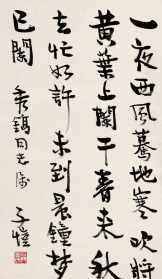 一夜西风蓦地寒吹将
黄叶上阑干春来秋
去忙如许未到晨钟梦
已阑 秀鹄同志属 子恺